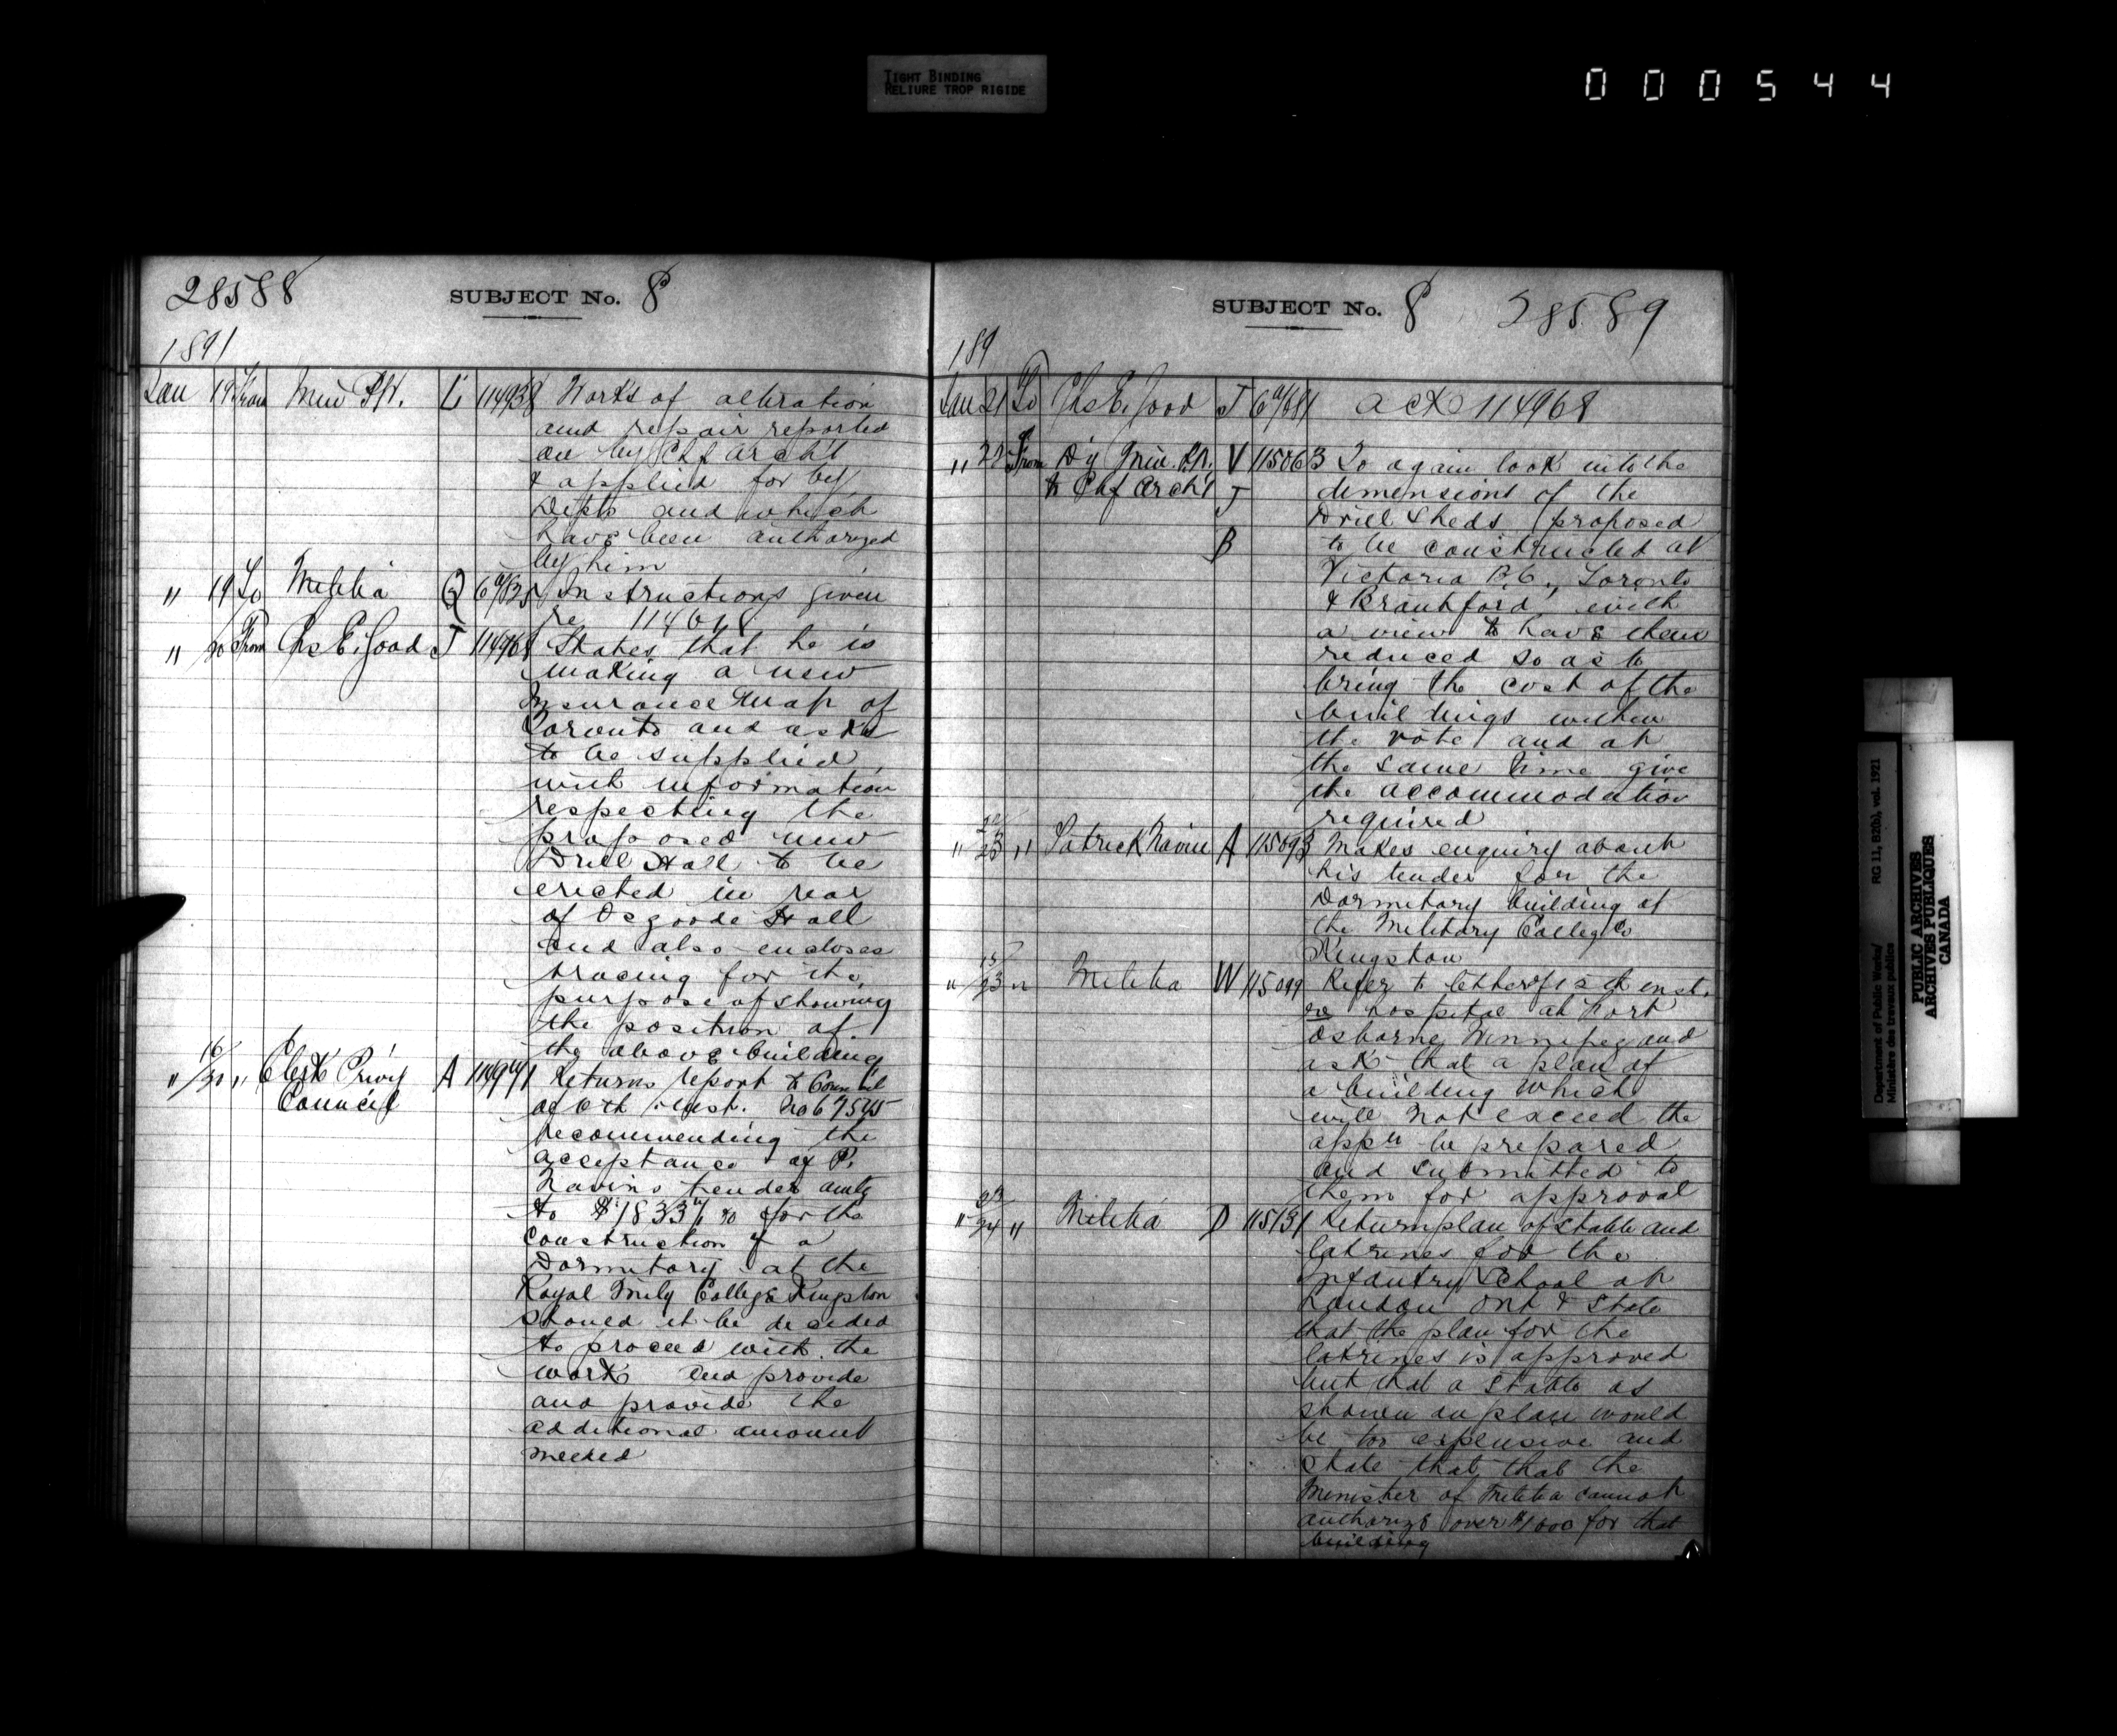 TIGHT BINDING
RELIURE TROP RIGIDE
000544
28588
SUBJECT No. 8
1891
Jan 19 From Min P.W. L 114938 Works of alteration
and repair reported
on by Chf Archt
& applied for by
Depts and which
have been authorized
by him
" 19 To Militia Q Instructions given
re
" 20 From Chs E. Goad T 114968 States that he is
making a new
Insurance Map of
Toronto and asks
to be supplied
with information
respecting the
proposed new
Drill Hall to be
erected in rear
of Osgoode Hall
and also encloses
tracing for the
purpose of showing
the position of
the above building
" 16/20 " Clerk Privy A Returns report to Council
Council of 6th inst. No 67545
recommending the
acceptance of P.
Navins tender amtg
to for the
construction of a
Dormitory at the
Royal Mily College Kingston
should it be decided
to proceed with the
work and provide
and provide the
additional amount
needed
SUBJECT No. 8 28589
189
Jan 21 To Chs E. Goad T ack 114968
" 22 From Dy Min. P.W. V 115063 To again look into the
to Chf Archt T dimensions of the
Drill Sheds proposed
B to be constructed at
Victoria B.C., Toronto
& Brantford, with
a view to have them
reduced so as to
bring the cost of the
buildings within
the vote and at
the same time give
the accommodation
required
" 23 " Patrick Navin A 115093 Makes enquiry about
his tender for the
Dormitory building at
the Military College
Kingston
" 15/23 " Militia W 115099 Refer to letter of inst.
re hospital at Fort
Osborne Winnipeg and
ask that a plan of
a building which
will not exceed the
appn be prepared
and submitted to
them for approval
" 23/24 " Militia D 115131 Return plan of stable and
latrines for the
Infantry School at
London Ont & State
that the plan for the
latrines is approved
but that a stable as
shown on plan would
be too expensive and
state that that the
Minister of Militia cannot
authorize over $1000 for that
building
Department of Public Works/
Ministère des travaux publics
RG 11, B2(b), vol. 1921
PUBLIC ARCHIVES
ARCHIVES PUBLIQUES
CANADA